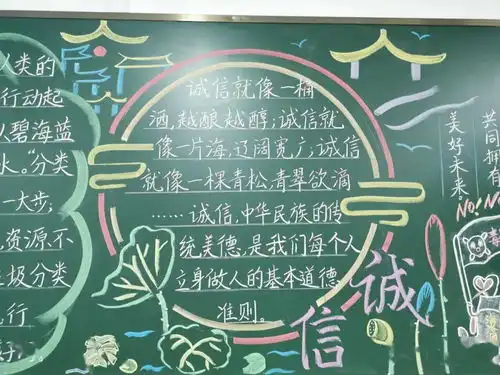 人类的
行动起
碧海蓝
水。”分类
一大步;
资源,不
圾分类
行
好
诚信就像一桶
酒,越酿越醇;诚信就
像一片海,辽阔宽广;诚信
就像一棵青松,青翠欲滴
……诚信,中华民族的传
统美德,是我们每个人
立身做人的基本道德
准则。
诚
信
共同拥有
美好未来。
NO!